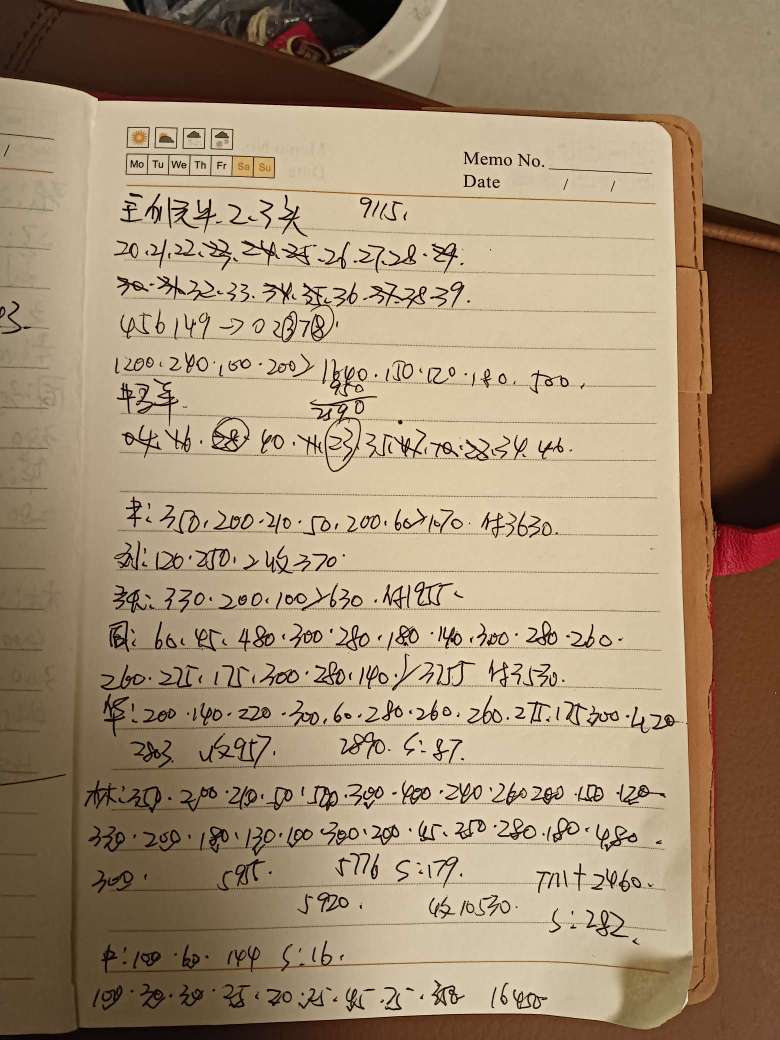 Mo Tu We Th Fr Sa Su
Memo No.
Date / /
2、3头 9115.
20.21.22.23.24.25.26.27.28.29.
30.31.32.33.34.35.36.37.38.39.
456149→02378.
1200.240.100.200>1640.150.120.180.500.
950
2590
04.16.28.40.11.23.35.47.10.23.34.46.
350.200.210.50.200.60>1070.付3630.
刘:120.250.>收370.
330.200.100>630.付1955.
周:60.45.480.300.280.180.140.300.280.260.
260.225.175.300.280.140.>3755 付3530.
华:200.140.220.300.60.280.260.260.275.175.300.420
2803. 收957. 2890. S:87.
林:350.200.210.50.500.300.400.240.260.200.150.120
330.200.180.130.100.300.200.45.250.280.180.480.
300. 5955. 5776 S:179. TM+2460.
5920. 收10530. S:282.
中:100.60.144 S:16.
100.30.30.35.20.25.45.25.350 16450